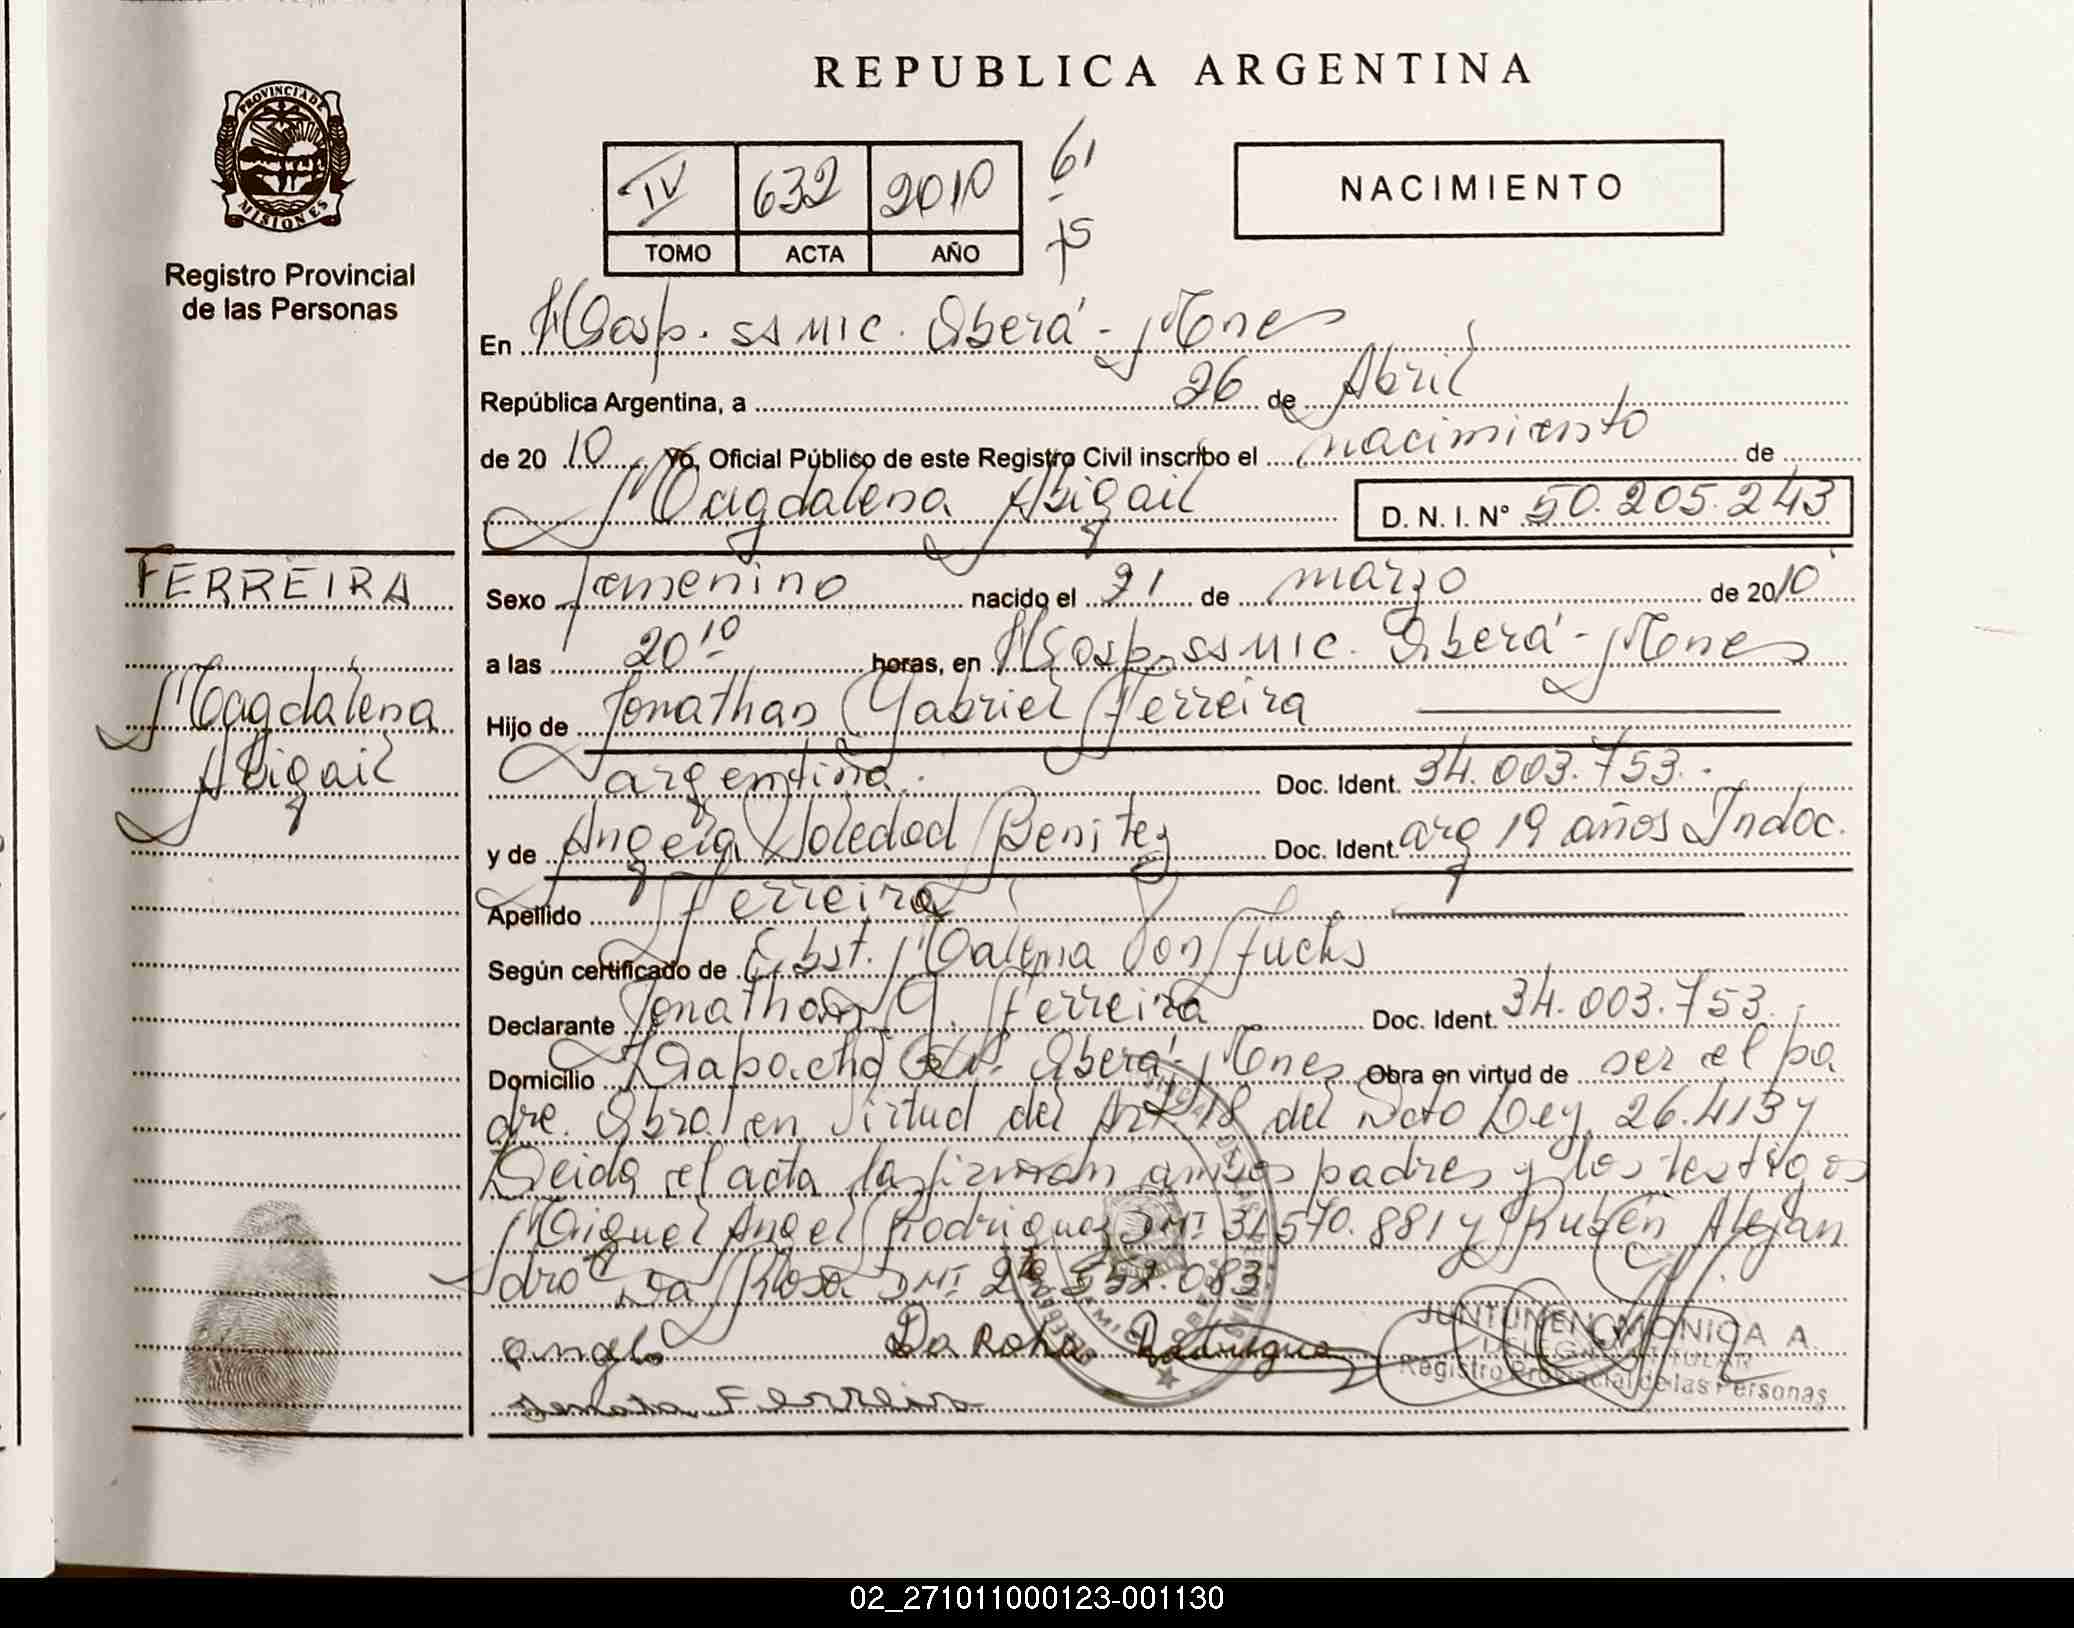 REPUBLICA ARGENTINA
PROVINCIA DE
MISIONES
Registro Provincial
de las Personas
IV 632 2010
TOMO ACTA AÑO
61
75
NACIMIENTO
En Hosp. SSMIC. Oberá - Mones
República Argentina, a 26 de Abril
de 2010 Yo, Oficial Público de este Registro Civil inscribo el nacimiento de
Magdalena Abigail D. N. I. N° 50.205.243
FERREIRA
Magdalena
Abigail
Sexo femenino nacido el 21 de marzo de 2010
a las 20 10 horas, en Hosp. SSMIC. Oberá - Mones
Hijo de Jonathan Gabriel Ferreira
argentina. Doc. Ident. 34.003.753.-
y de Angela Soledad Benitez Doc. Ident. arg 19 años Indoc.
Apellido Ferreira
Según certificado de Obst. Malena Von Fuchs
Declarante Jonathan G. Ferreira Doc. Ident. 34.003.753.
Domicilio Lapacho Oberá - Mones Obra en virtud de ser el pa
dre. Obra en virtud del Art. 18 del Dcto Ley 26.413 y
Leida el acta la firman ambos padres y los testigos
Miguel Angel Rodriguez DMI 31.570.881 y Ruben Alejan
dro Da Rosa DMI 552.083
angela Da Rosa Rodriguez
Ferreira
JUNTUNEN MONICA A.
Registro Provincial de las Personas
02_271011000123-001130